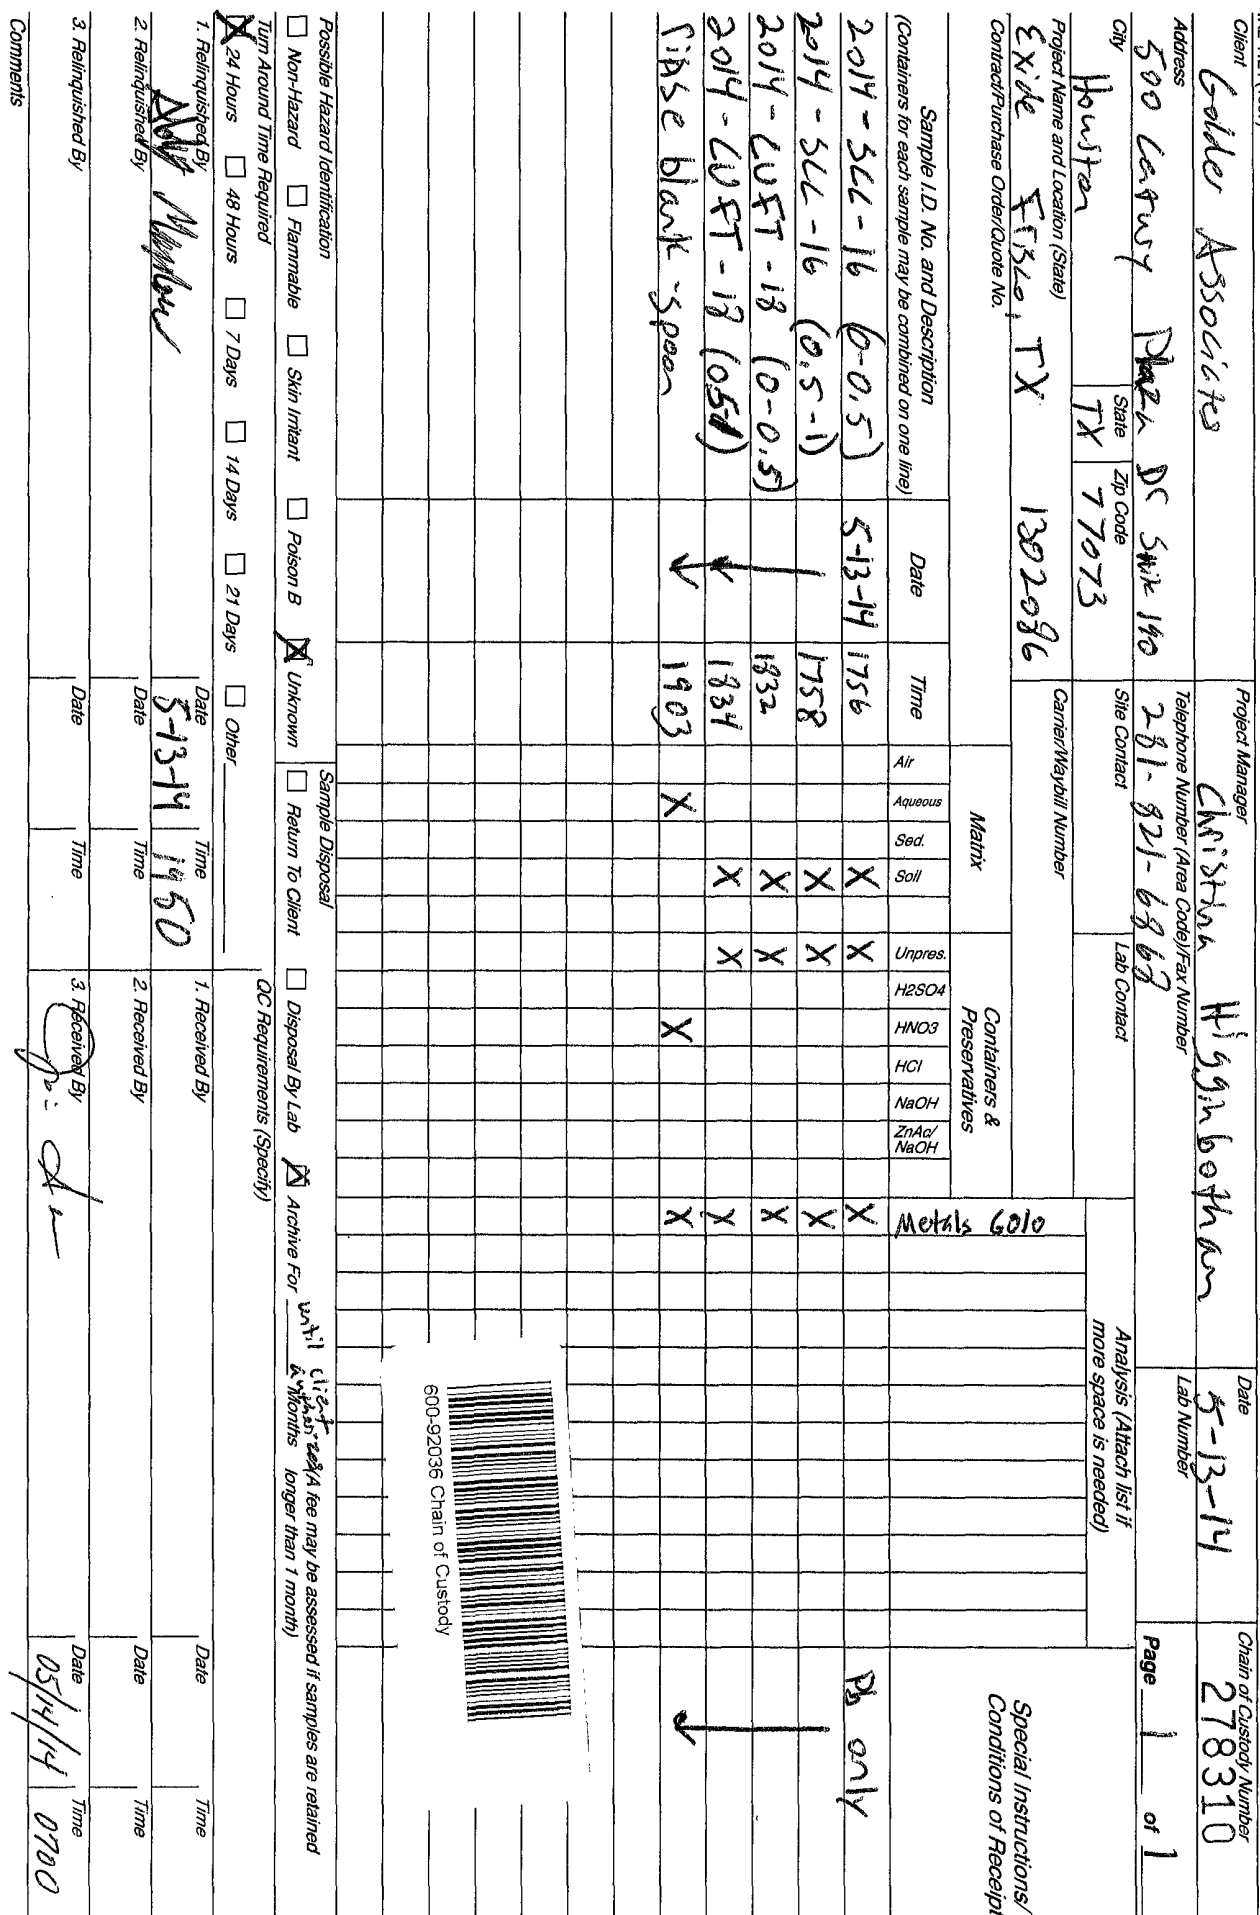 Client
Golder Associates
Project Manager
Christina Higginbotham
Date
5-13-14
Chain of Custody Number
278310
Address
500 Century Plaza Dr Suite 190
Telephone Number (Area Code)/Fax Number
281-821-6868
Lab Number
Page 1 of 1
City
Houston
State
TX
Zip Code
77073
Site Contact
Lab Contact
Analysis (Attach list if
more space is needed)
Project Name and Location (State)
Exide Frisco, TX 1302086
Carrier/Waybill Number
Special Instructions/
Conditions of Receipt
Contract/Purchase Order/Quote No.
Matrix
Containers &
Preservatives
Metals 6010
Sample I.D. No. and Description
(Containers for each sample may be combined on one line)
Date
Time
Air
Aqueous
Sed.
Soil
Unpres.
H2SO4
HNO3
HCl
NaOH
ZnAc/
NaOH
2014-SCC-16 (0-0.5) 5-13-14 1756 X X X Pb only
2014-SCC-16 (0.5-1) 1758 X X X
2014-CUFT-18 (0-0.5) 1832 X X X
2014-CUFT-18 (0.5-1) 1834 X X X
rinse blank -spoon 1903 X X X
600-92036 Chain of Custody
Possible Hazard Identification
Non-Hazard
Flammable
Skin Irritant
Poison B
X Unknown
Sample Disposal
Return To Client
Disposal By Lab
X Archive For until client authorizes Months
(A fee may be assessed if samples are retained
longer than 1 month)
Turn Around Time Required
X 24 Hours
48 Hours
7 Days
14 Days
21 Days
Other
QC Requirements (Specify)
1. Relinquished By
Date
5-13-14
Time
1950
1. Received By
Date
Time
2. Relinquished By
Date
Time
2. Received By
Date
Time
3. Relinquished By
Date
Time
3. Received By
Date
05/14/14
Time
0700
Comments